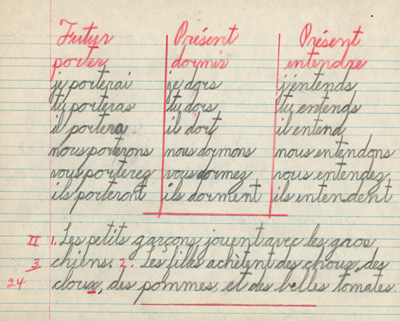 Futur Présent Présent
porter dormir entendre
je porterai je dors j'entends
tu porteras tu dors tu entends
il portera il dort il entend
nous porterons nous dormons nous entendons
vous porterez vous dormez vous entendez
ils porteront ils dorment ils entendent
II 1. Les petits garçons jouent avec les gros
3 chiens. 2. Les filles achètent des choux, des
24 cloux, des pommes et des belles tomates.